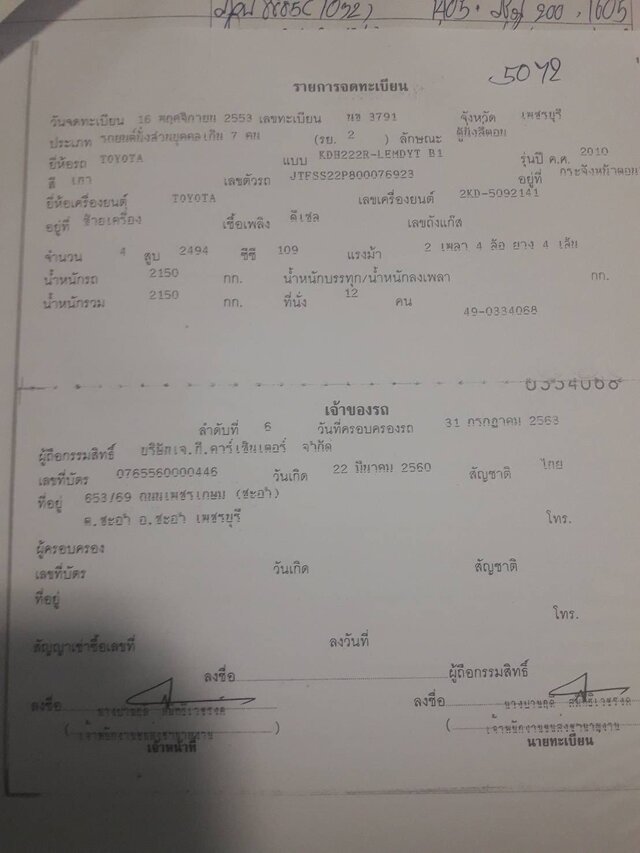 1605
5072
รายการจดทะเบียน
วันจดทะเบียน 16 พฤศจิกายน 2553 เลขทะเบียน นข 3791 จังหวัด เพชรบุรี
ประเภท รถยนต์นั่งส่วนบุคคลเกิน 7 คน (รย. 2 ) ลักษณะ ตู้นั่งสี่ตอน
ยี่ห้อรถ TOYOTA แบบ KDH222R-LEMDYT B1 รุ่นปี ค.ศ. 2010
สี เทา เลขตัวรถ JTFSS22P800076923 อยู่ที่ กระจังหน้าตอน
ยี่ห้อเครื่องยนต์ TOYOTA เลขเครื่องยนต์ 2KD-5092141
อยู่ที่ ซ้ายเครื่อง เชื้อเพลิง ดีเซล เลขถังแก๊ส
จำนวน 4 สูบ 2494 ซีซี 109 แรงม้า 2 เพลา 4 ล้อ ยาง 4 เส้น
น้ำหนักรถ 2150 กก. น้ำหนักบรรทุก/น้ำหนักลงเพลา กก.
น้ำหนักรวม 2150 กก. ที่นั่ง 12 คน
49-0334068
0334068
เจ้าของรถ
ลำดับที่ 6 วันที่ครอบครองรถ 31 กรกฎาคม 2563
ผู้ถือกรรมสิทธิ์ บริษัทเจ.ที.คาร์เซ็นเตอร์ จำกัด
เลขที่บัตร 0765560000446 วันเกิด 22 มีนาคม 2560 สัญชาติ ไทย
ที่อยู่ 653/69 ถนนเพชรเกษม (ชะอำ)
ต.ชะอำ อ.ชะอำ เพชรบุรี โทร.
ผู้ครอบครอง
เลขที่บัตร วันเกิด สัญชาติ
ที่อยู่
โทร.
สัญญาเช่าซื้อเลขที่ ลงวันที่
ลงชื่อ ผู้ถือกรรมสิทธิ์
ลงชื่อ ลงชื่อ
( เจ้าพนักงานขนส่งชำนาญงาน ) ( เจ้าพนักงานขนส่งชำนาญงาน
เจ้าหน้าที่ นายทะเบียน